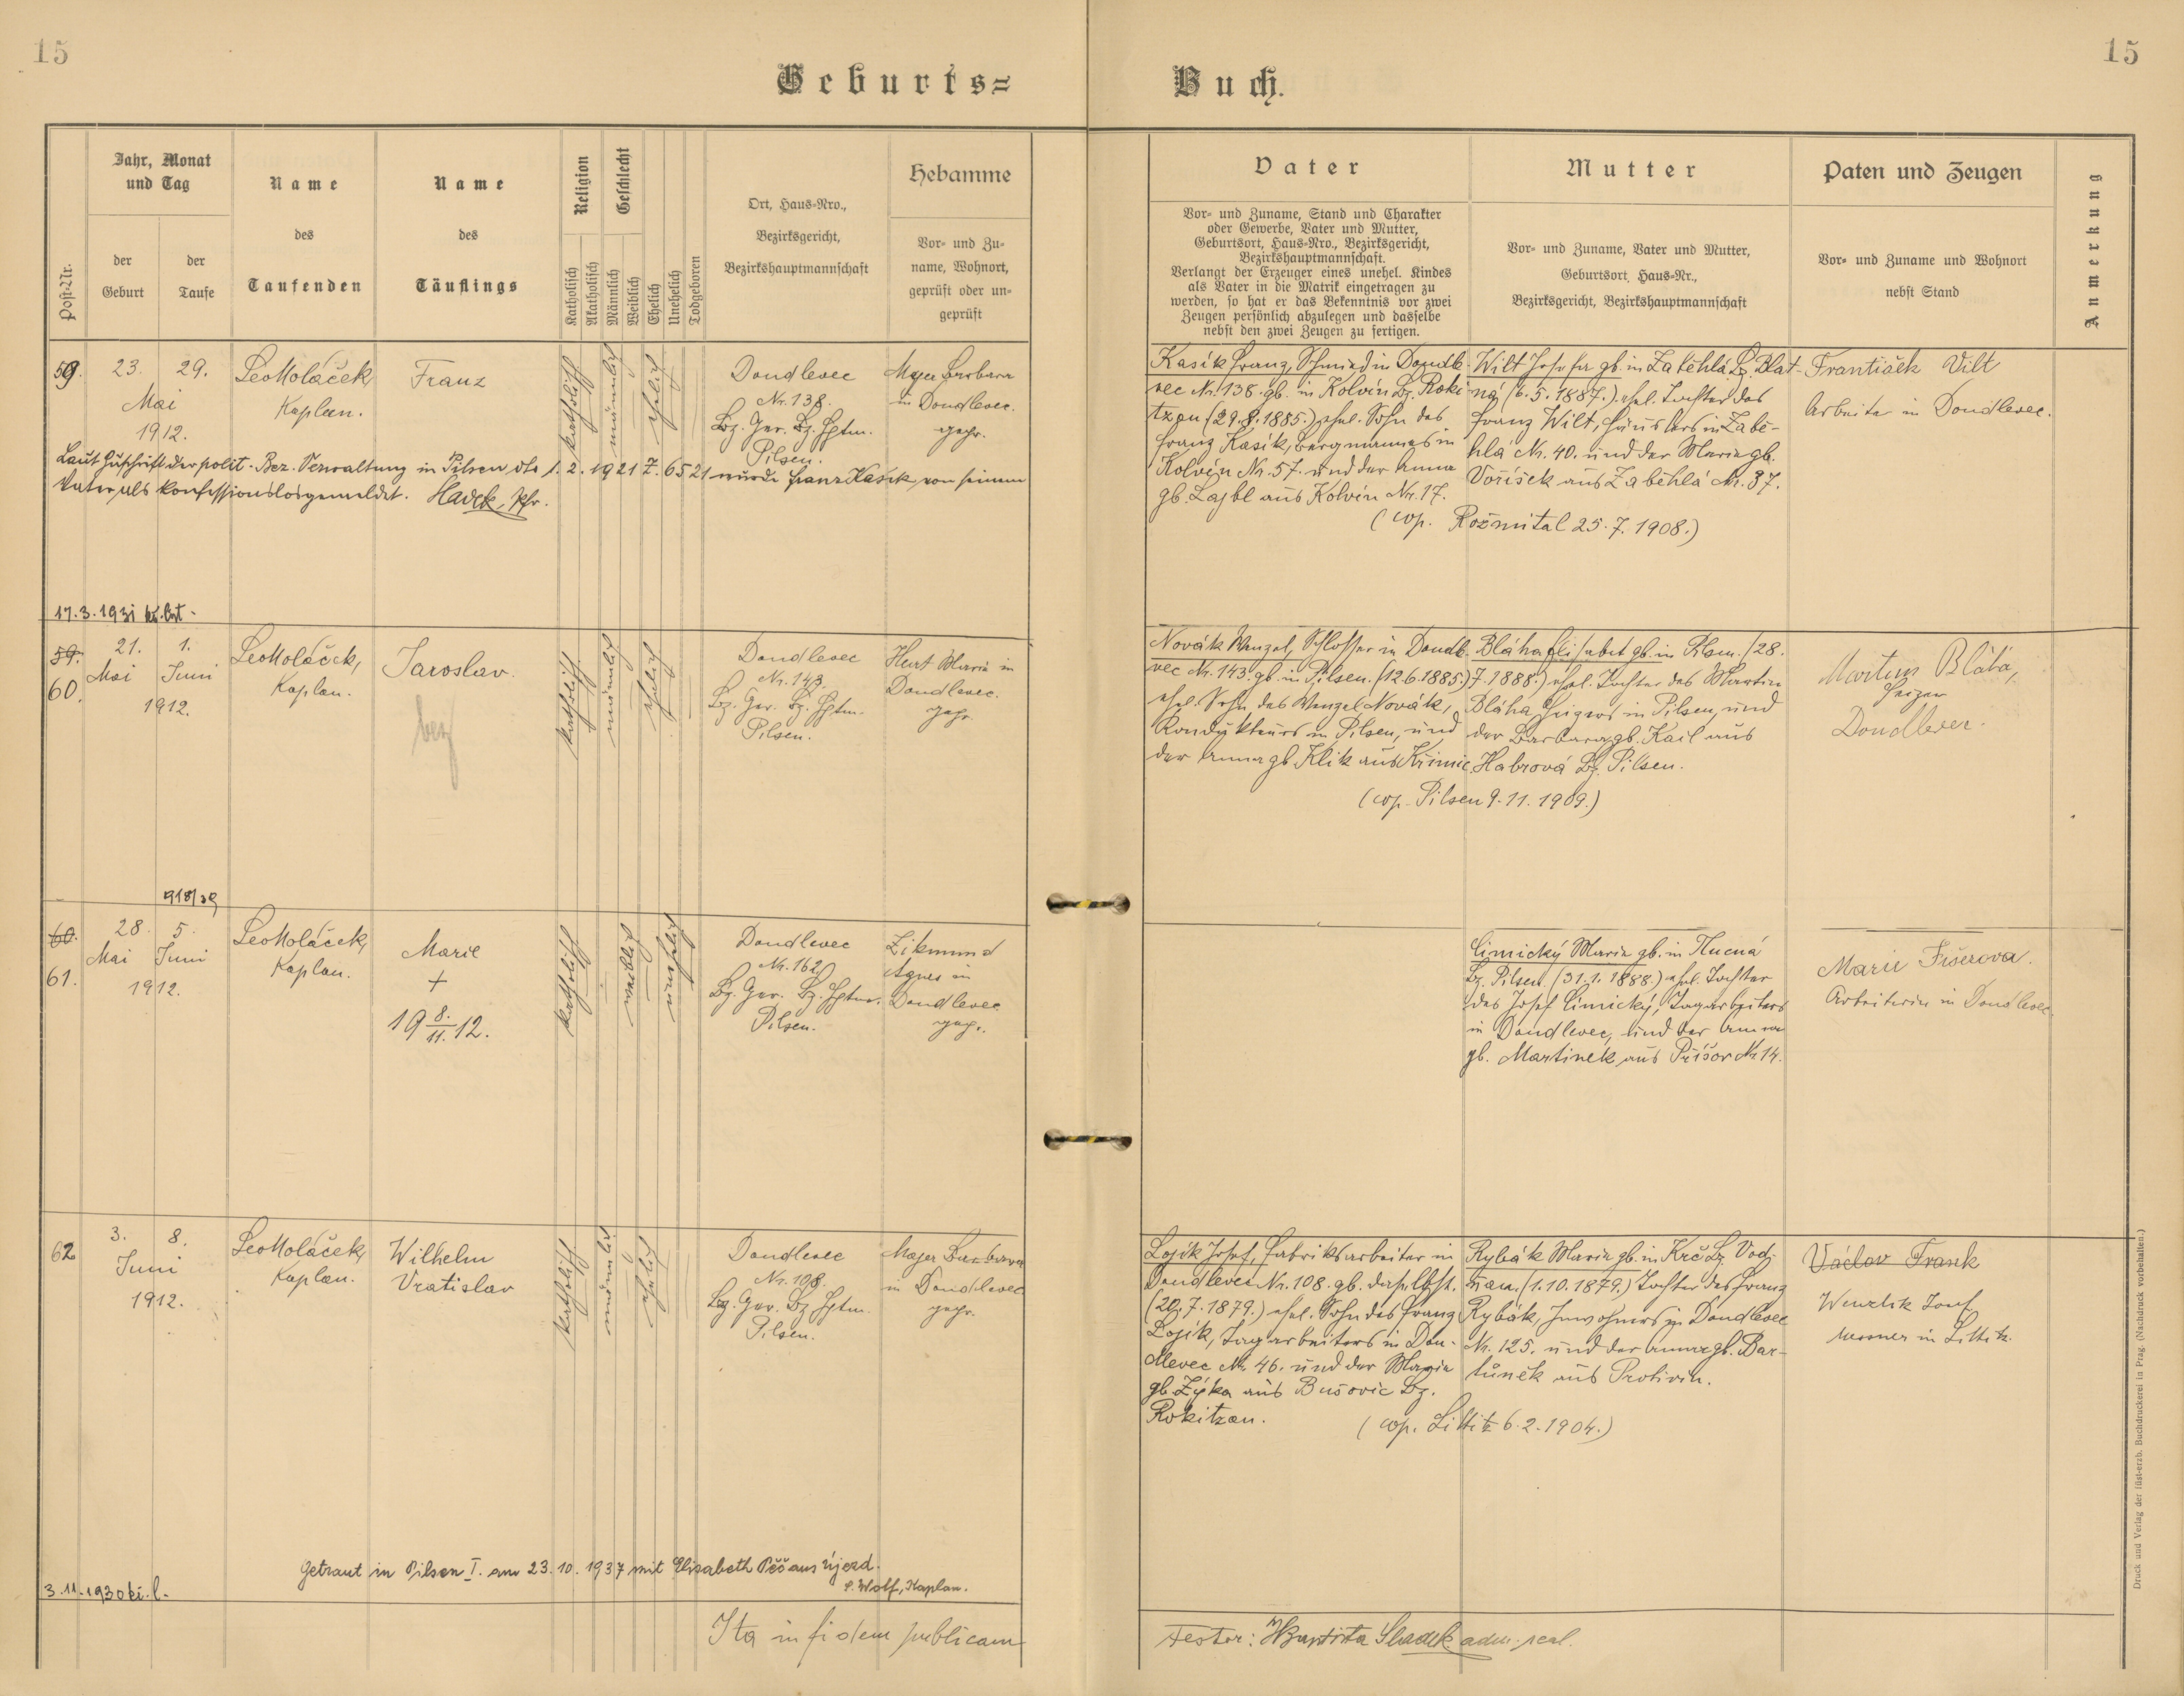 15
15
Geburts=
Buch.
Post-Nr.
Jahr, Monat
und Tag
der
Geburt
der
Taufe
Name
des
Taufenden
Name
des
Täuflings
Religion
Katholisch
Akatholisch
Geschlecht
Männlich
Weiblich
Ehelich
Unehelich
Todgeboren
Ort, Haus-Nro.,
Bezirksgericht,
Bezirkshauptmannschaft
Hebamme
Vor- und Zu-
name, Wohnort,
geprüft oder un-
geprüft
Vater
Vor- und Zuname, Stand und Charakter
oder Gewerbe, Vater und Mutter,
Geburtsort, Haus-Nro., Bezirksgericht,
Bezirkshauptmannschaft.
Verlangt der Erzeuger eines unehel. Kindes
als Vater in die Matrik eingetragen zu
werden, so hat er das Bekenntnis vor zwei
Zeugen persönlich abzulegen und dasselbe
nebst den zwei Zeugen zu fertigen.
Mutter
Vor- und Zuname, Vater und Mutter,
Geburtsort, Haus-Nr.,
Bezirksgericht, Bezirkshauptmannschaft
Paten und Zeugen
Vor- und Zuname und Wohnort
nebst Stand
Anmerkung
59.
23.
29.
Mai
1912.
Leo Koláček,
Kaplan.
Franz
katholisch
männlich
ehelich
Doudlevec
Nr. 138.
Bz. Ger. Bz. Hptm.
Pilsen.
Mayer Barbara
in Doudlevec.
gepr.
Kasík Franz, Schmied in Doudle-
vec Nr. 138. gb. in Kolvín Bz. Roki-
tzan (29.8.1885.) ehel. Sohn des
Franz Kasík, Bergmannes in
Kolvín Nr. 57. und der Anna
gb. Lajbl aus Kolvín Nr. 17.
Wilt Josefa gb. in Zaběhlá Bz. Blat-
ná (6.5.1887.) ehel. Tochter des
Franz Wilt, Häuslers in Zabě-
hlá Nr. 40. und der Maria gb.
Voříšek aus Zaběhlá Nr. 37.
(cop. Rožmital 25.7.1908.)
František Vilt
Arbeiter in Doudlevec.
Laut Zuschrift der polit. Bez. Verwaltung in Pilsen dto 1.2.1921 Z. 6521 wurde Franz Kasík von seinem
Vater als konfessionslos gemeldet. Hadek, Pfr.
17.3.1931
59.
60.
21.
1.
Mai
Juni
1912.
Leo Koláček,
Kaplan.
Jaroslav.
katholisch
männlich
ehelich
Doudlevec
Nr. 143.
Bz. Ger. Bz. Hptm.
Pilsen.
Hurt Maria in
Doudlevec.
gepr.
Novák Wenzel, Schlosser in Doudle-
vec Nr. 143. gb. in Pilsen. (12.6.1885.)
ehel. Sohn des Wenzel Novák,
Kondukteurs in Pilsen, und
der Anna gb. Klik aus Křimic.
Bláha Elisabet gb. in Pilsen. (28.
7.1888.) ehel. Tochter des Martin
Bláha Heizers in Pilsen, und
der Barbara gb. Kail aus
Habrová Bz. Pilsen.
(cop. Pilsen 9.11.1909.)
Martin Bláha,
Heizer
Doudlevec.
918/39
60.
61.
28.
5.
Mai
Juni
1912.
Leo Koláček,
Kaplan.
Marie
+
19 8./11. 12.
katholisch
weiblich
unehelich
Doudlevec
Nr. 162
Bz. Ger. Bz. Hptm.
Pilsen.
Zikmund
Agnes in
Doudlevec
gepr.
Cimický Maria gb. in
Bz. Pilsen. (31.1.1888.) ehel. Tochter
des Josef Cimický, Tagarbeiters
in Doudlevec, und der Anna
gb. Martinek aus Příšov Nr. 14.
Marie Fišerova.
Arbeiterin in Doudlevec.
62
3.
8.
Juni
1912.
Leo Koláček,
Kaplan.
Wilhelm
Vratislav
katholisch
männlich
ehelich
Doudlevec
Nr. 108.
Bz. Ger. Bz. Hptm.
Pilsen.
Mayer Barbara
in Doudlevec
gepr.
Lojík Josef, Fabriksarbeiter in
Doudlevec Nr. 108. gb. daselbst.
(20.7.1879.) ehel. Sohn des Franz
Lojík, Tagarbeiters in Dou-
dlevec Nr. 46. und der Maria
gb. Zýka aus Bušovic Bz.
Rokitzan.
Rybák Maria gb. in Krč Bz. Vod-
ňan. (1.10.1879.) Tochter des Franz
Rybák, Inwohners in Doudlevec
Nr. 125. und der Anna gb. Bar-
tůněk aus Protivin.
(cop. Littitz 6.2.1904.)
Václav Frank
Wenzlik Josef
Messner in Littitz.
Getraut in Pilsen I. am 23.10.1937 mit Elisabeth Pěč aus Újezd.
P. Wolf, Kaplan.
3.11.1930
Ita in fidem publicam
Testor: Baptista Sladek adm. paol.
Druck und Verlag der fürst-erzb. Buchdruckerei in Prag. (Nachdruck vorbehalten.)